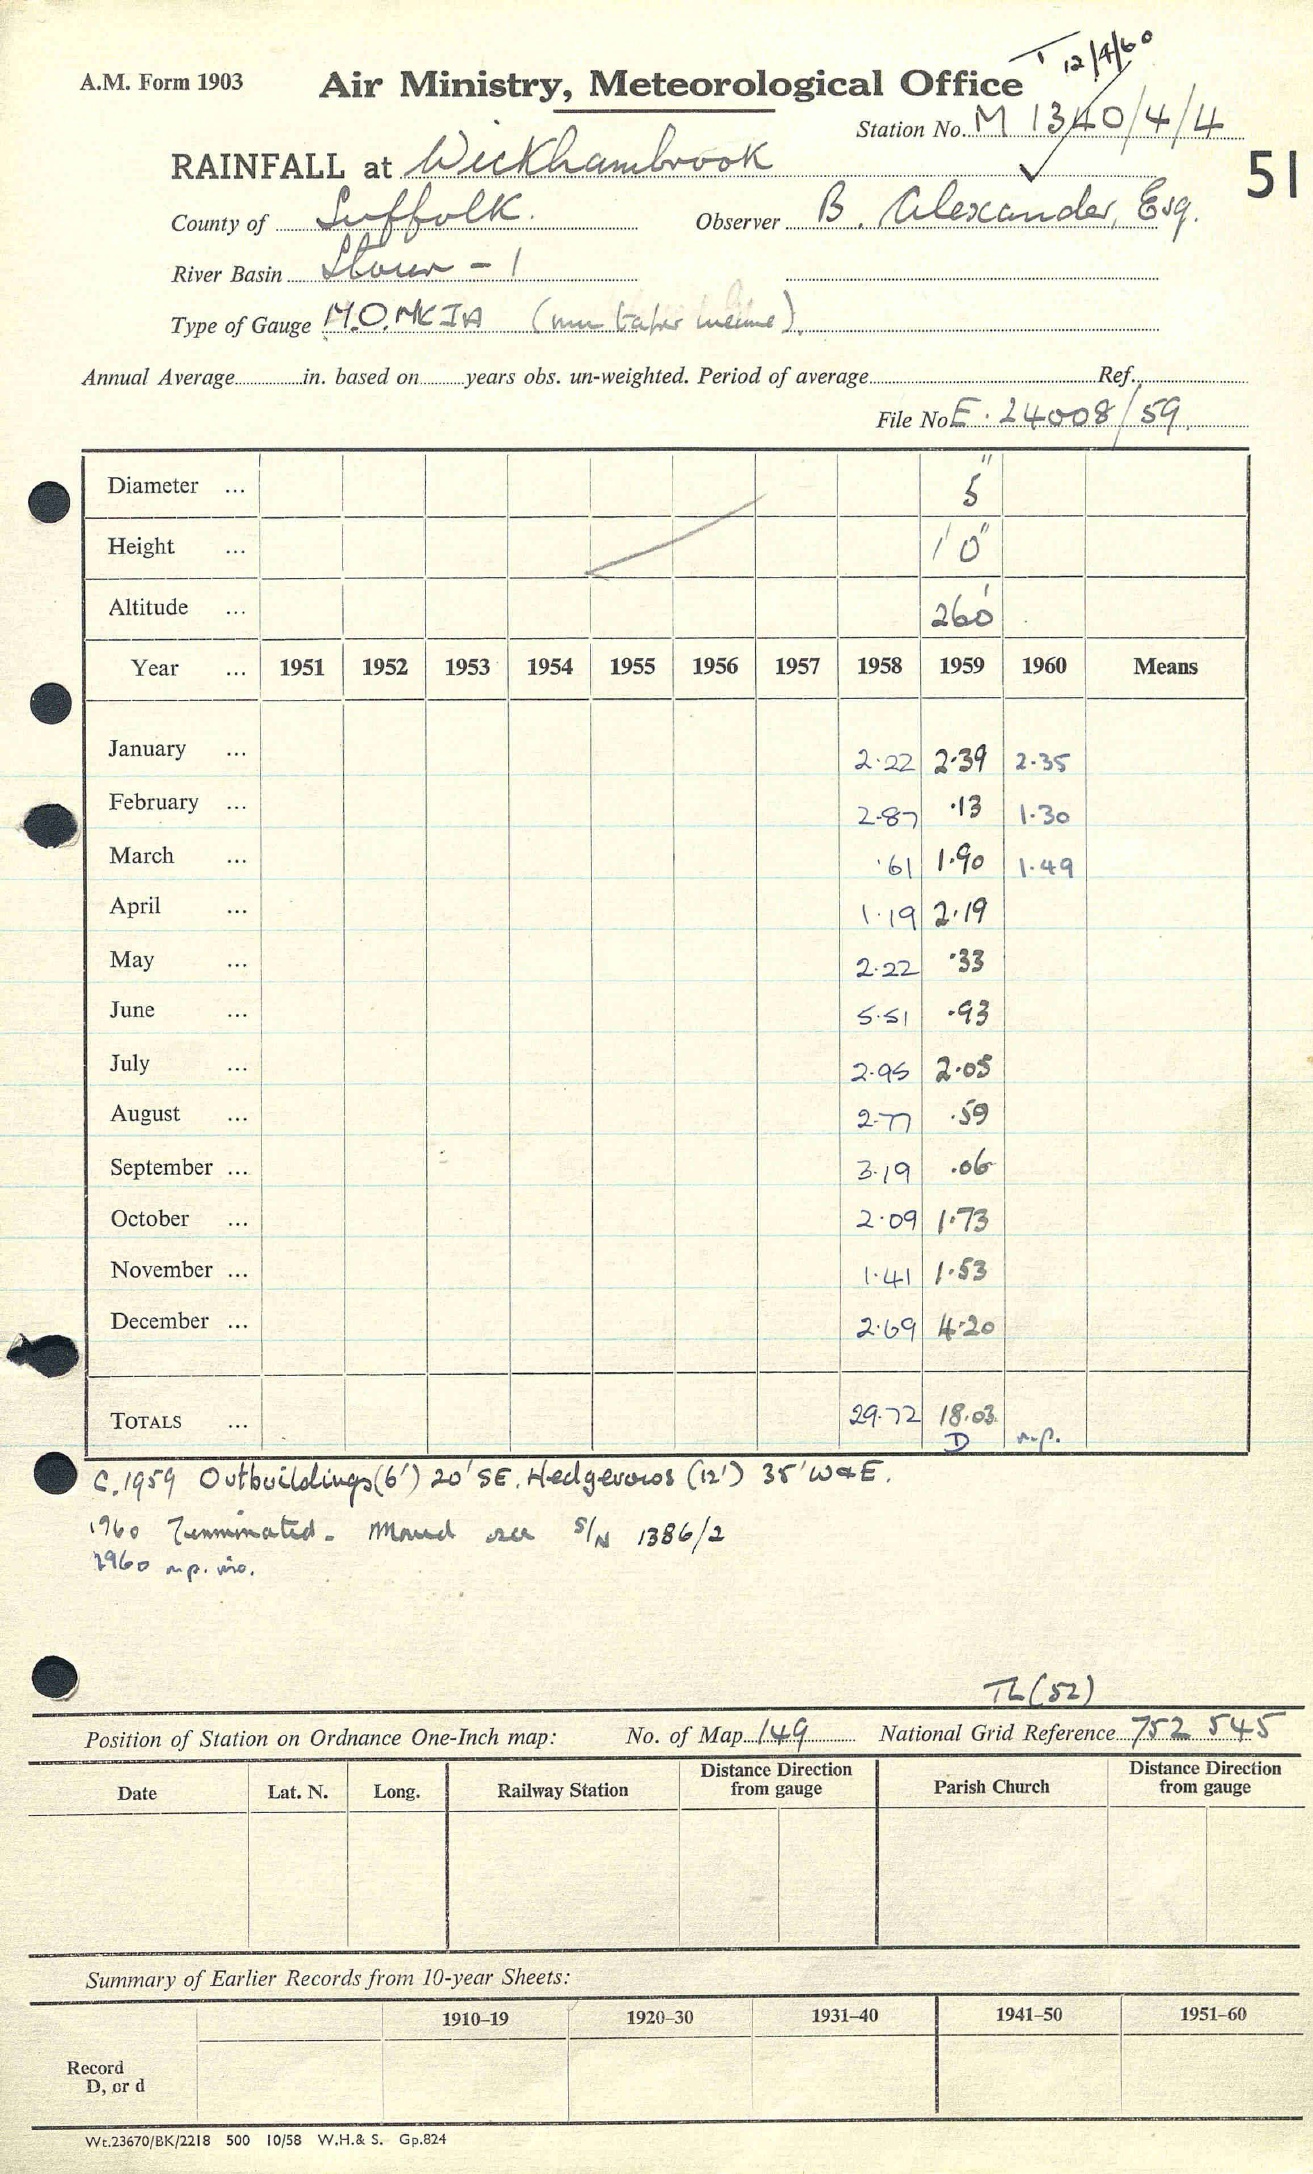 T 12/4/60
A.M. Form 1903 Air Ministry, Meteorological Office
Station No. M 1340/4/4
RAINFALL at Wickhambrook
51
County of Suffolk. Observer B. Alexander, Esq.
River Basin Stour - 1
Type of Gauge M.O. MK IA
Annual Average in. based on years obs. un-weighted. Period of average Ref.
File No E. 24008/59.
Diameter ... 5"
Height ... 1' 0"
Altitude ... 260'
Year ... 1951 1952 1953 1954 1955 1956 1957 1958 1959 1960 Means
January ... 2.22 2.39 2.35
February ... 2.87 .13 1.30
March ... .61 1.90 1.49
April ... 1.19 2.19
May ... 2.22 .33
June ... 5.51 .93
July ... 2.95 2.05
August ... 2.77 .59
September ... 3.19 .06
October ... 2.09 1.73
November ... 1.41 1.53
December ... 2.69 4.20
TOTALS ... 29.72 18.03
D n.p.
C. 1959 Outbuildings (6') 20' SE. Hedgerows (12') 35' W & E.
1960 Terminated - Moved see S/N 1386/2
1960 n.p.
TL (52)
Position of Station on Ordnance One-Inch map: No. of Map 149 National Grid Reference 752 545
Date Lat. N. Long. Railway Station Distance Direction from gauge Parish Church Distance Direction from gauge
Summary of Earlier Records from 10-year Sheets:
1910–19 1920–30 1931–40 1941–50 1951–60
Record
D, or d
Wt.23670/BK/2218 500 10/58 W.H.& S. Gp.824